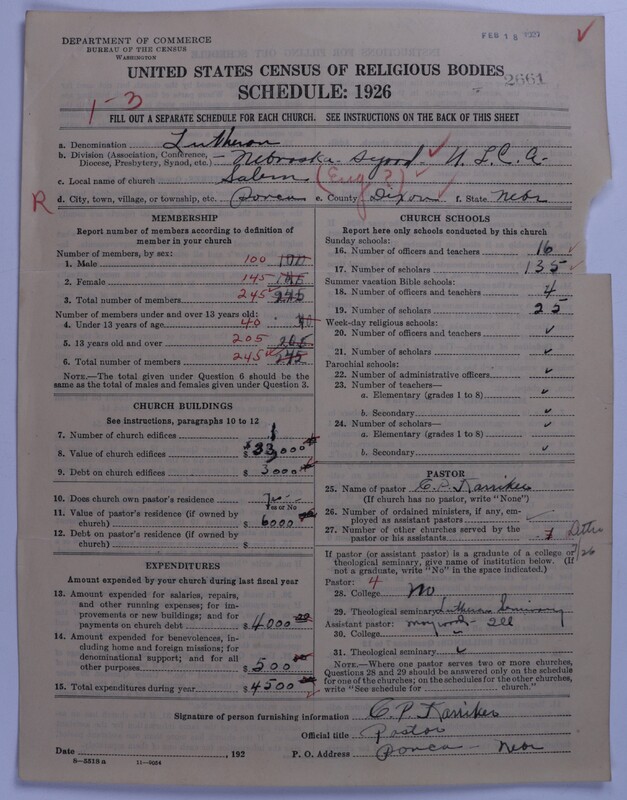 DEPARTMENT OF COMMERCE
BUREAU OF THE CENSUS
WASHINGTON
FEB 18 1927
UNITED STATES CENSUS OF RELIGIOUS BODIES
2661
SCHEDULE: 1926
1-3
FILL OUT A SEPARATE SCHEDULE FOR EACH CHURCH. SEE INSTRUCTIONS ON THE BACK OF THIS SHEET
a. Denomination Lutheran
b. Division (Association, Conference, Diocese, Presbytery, Synod, etc.) - Nebraska Synod U. L. C. A.
c. Local name of church Salem (Eng?)
R
d. City, town, village, or township, etc. Ponca e. County Dixon f. State Nebr
MEMBERSHIP
Report number of members according to definition of member in your church
Number of members, by sex:
1. Male 100 100
2. Female 145 145
3. Total number of members 245 245
Number of members under and over 13 years old:
4. Under 13 years of age 40 40
5. 13 years old and over 205 205
6. Total number of members 245 245
NOTE.—The total given under Question 6 should be the same as the total of males and females given under Question 3.
CHURCH BUILDINGS
See instructions, paragraphs 10 to 12
7. Number of church edifices 1
8. Value of church edifices $33,000
9. Debt on church edifices $3000
10. Does church own pastor's residence Yes
Yes or No
11. Value of pastor's residence (if owned by church) $6000
12. Debt on pastor's residence (if owned by church) $
EXPENDITURES
Amount expended by your church during last fiscal year
13. Amount expended for salaries, repairs, and other running expenses; for improvements or new buildings; and for payments on church debt $4000 00
14. Amount expended for benevolences, including home and foreign missions; for denominational support; and for all other purposes $500 00
15. Total expenditures during year $4500 00
CHURCH SCHOOLS
Report here only schools conducted by this church
Sunday schools:
16. Number of officers and teachers 16
17. Number of scholars 135
Summer vacation Bible schools:
18. Number of officers and teachers 4
19. Number of scholars 25
Week-day religious schools:
20. Number of officers and teachers
21. Number of scholars
Parochial schools:
22. Number of administrative officers
23. Number of teachers—
a. Elementary (grades 1 to 8)
b. Secondary
24. Number of scholars—
a. Elementary (grades 1 to 8)
b. Secondary
PASTOR
25. Name of pastor C. P. Karriker
(If church has no pastor, write "None")
26. Number of ordained ministers, if any, employed as assistant pastors
27. Number of other churches served by the pastor or his assistants 1
/26
If pastor (or assistant pastor) is a graduate of a college or theological seminary, give name of institution below. (If not a graduate, write "No" in the space indicated.)
Pastor: 4
28. College No
29. Theological seminary Lutheran Seminary
Assistant pastor: Maywood - Ill
30. College
31. Theological seminary
NOTE.—Where one pastor serves two or more churches, Questions 28 and 29 should be answered only on the schedule for one of the churches; on the schedules for the other churches, write "See schedule for church."
Signature of person furnishing information C. P. Karriker
Official title Pastor
Date , 192
P. O. Address Ponca - Nebr
8-5318 a 11-9034